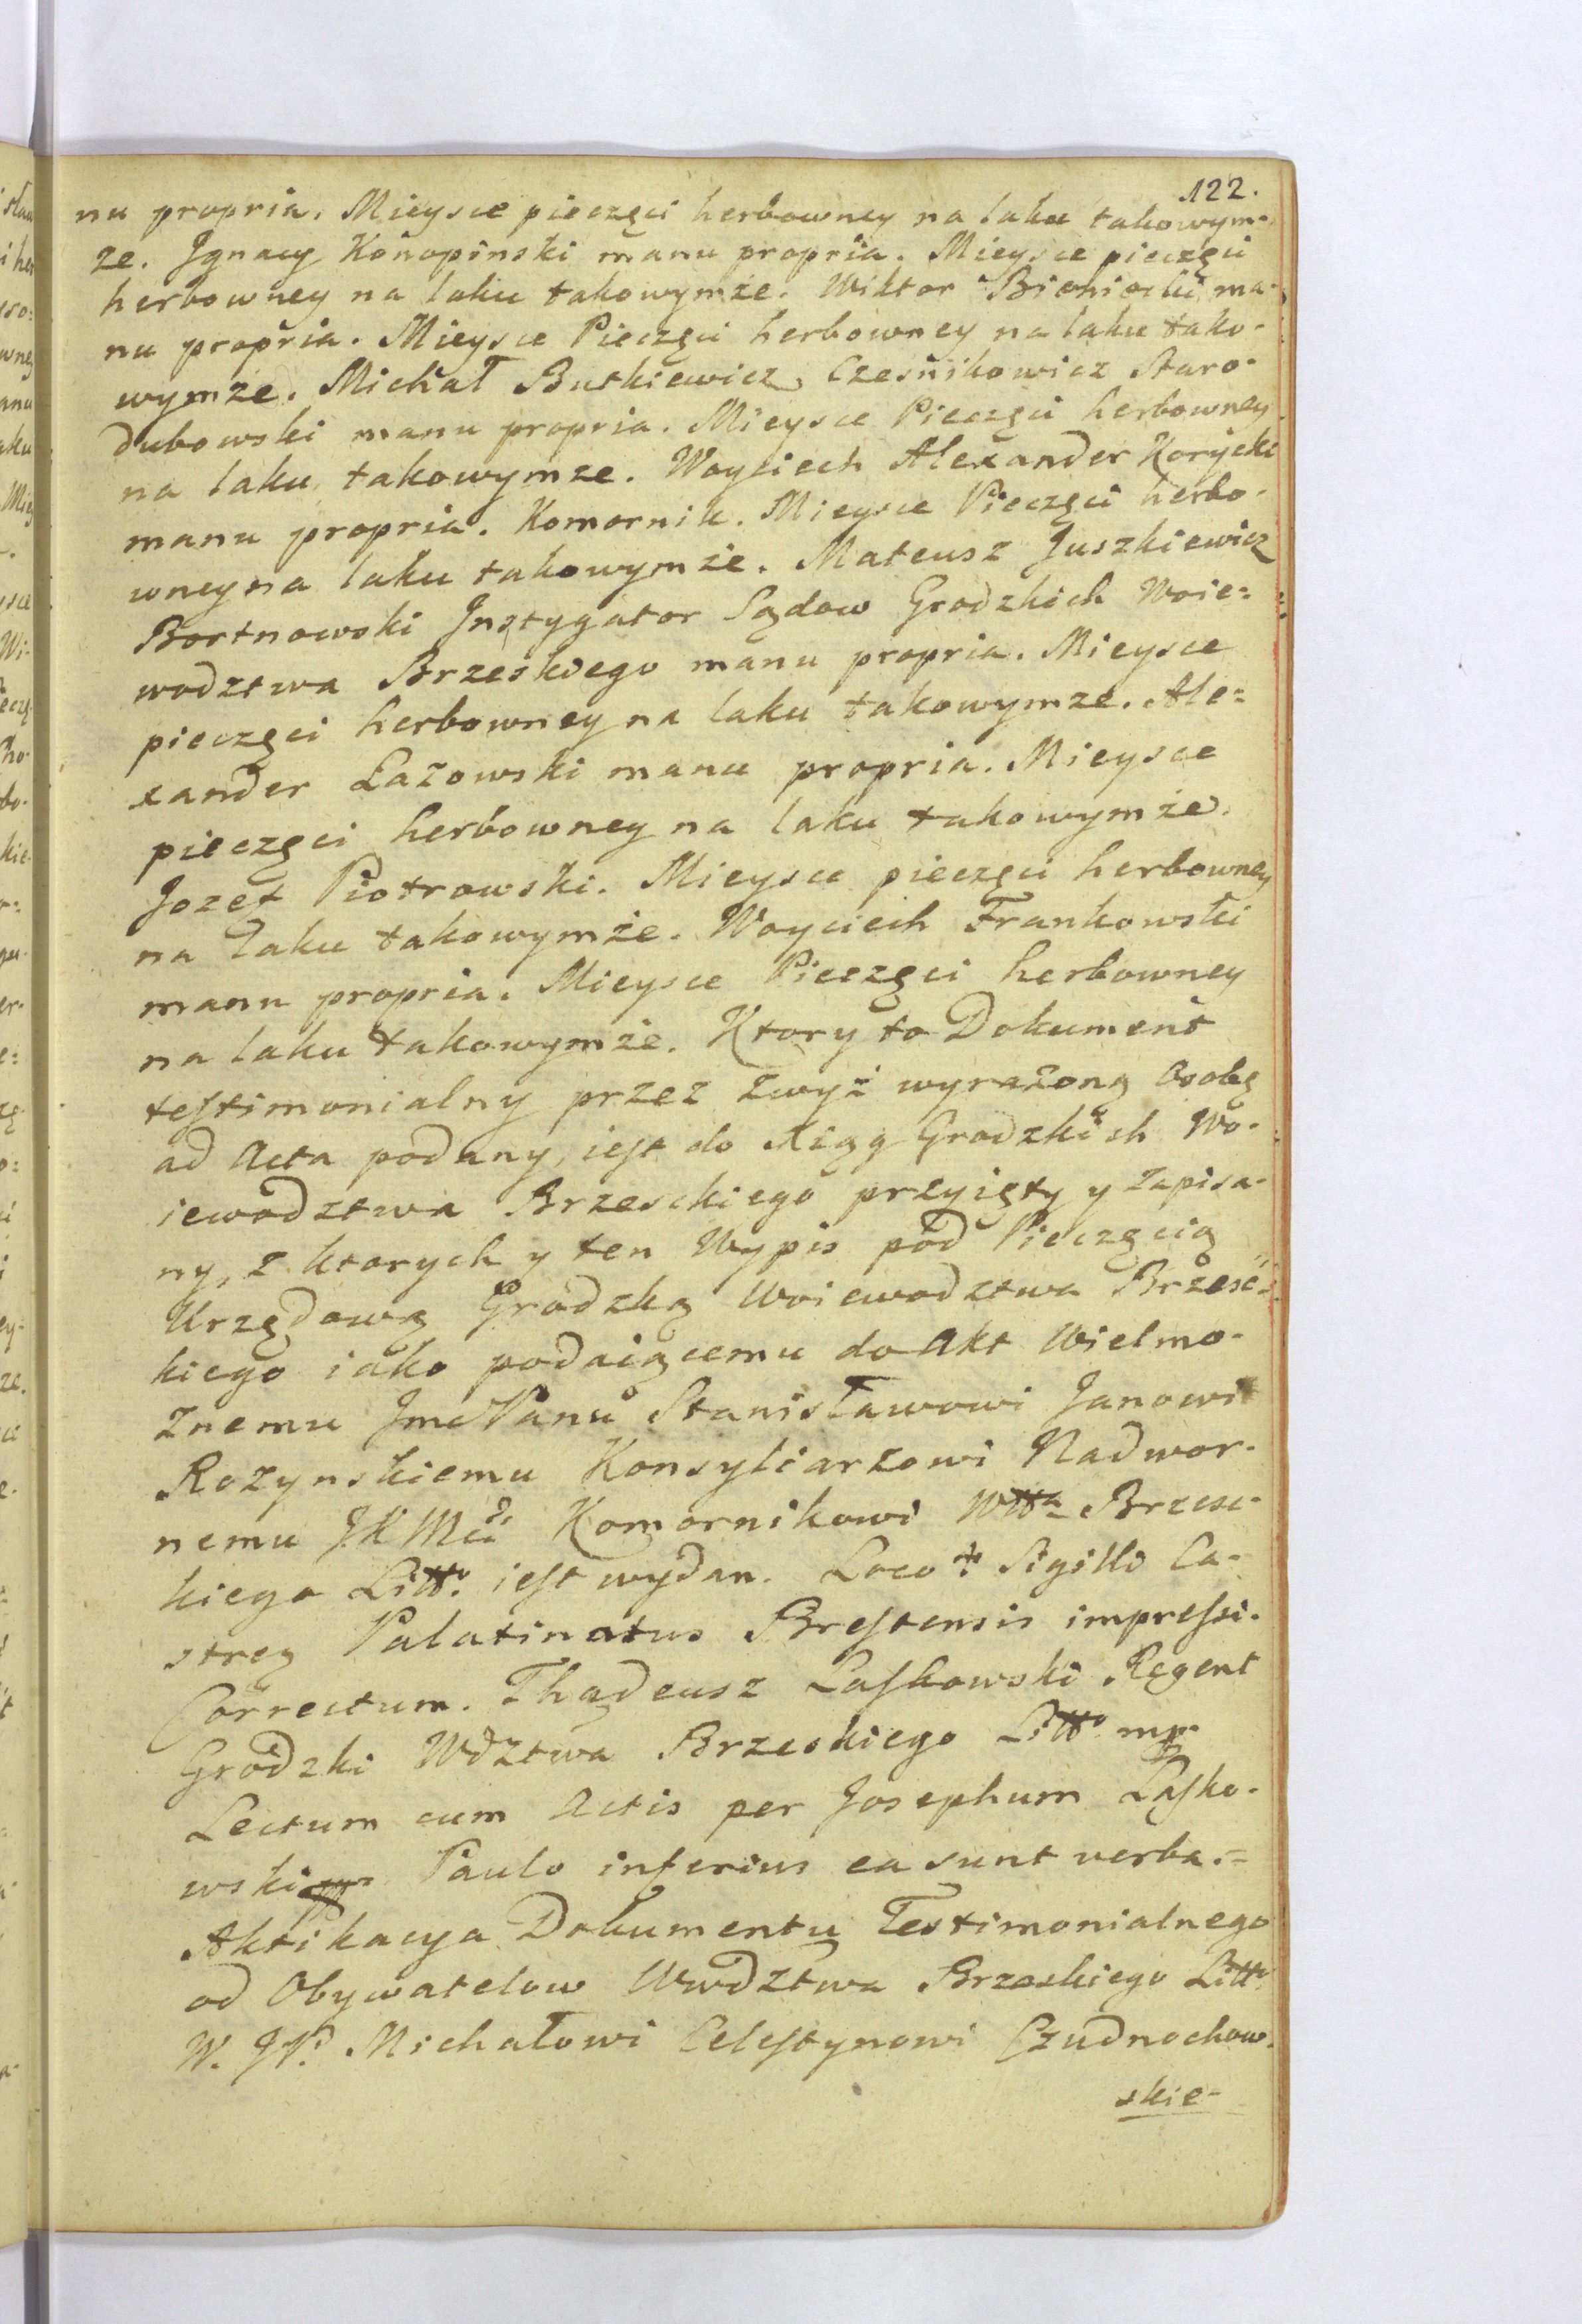 122.
nu propria. Mieysce pieczęci herbowney na laku takowym-
ze. Jgnacy Konopinski manu propria. Mieysce pieczęci
herbowney na laku takowymże. Wiktor ma-
nu propria. Mieysce Pieczęci herbowney na laku tako-
wymże. Michał Butkiewicz Czesnikowicz Staro-
dubowski manu propria. Mieysce Pieczęci herbowney
na laku takowymze. Woyciech Alexander Korycki
manu propria. Komornik. Mieysce Pieczęci herbo-
wney na laku takowymże. Mateusz Juszkiewicz
Bortnowski Jnstygator Sądow Grodzkich Woie=
wodztwa Brzeskiego manu propria. Mieysce
pieczęci herbowney na laku takowymze. Ale=
xander Łazowski manu propria. Mieysce
pieczęci herbowney na laku takowymże.
Jozef Piotrowski. Mieysce pieczęci herbowney
na laku takowymże. Woyciech Frankowski
manu propria. Mieysce Pieczęci herbowney
na laku takowymże. Ktory to Dokument
testimonialny przez zwyż wyrażoną Osobę
ad Acta podany, iest do Xiąg Grodzkich Wo-
iewodztwa Brzesckiego przyięty y zapisa-
ny, z ktorych y ten Wypis pod Pieczęcią
Urzędową Grodzką Woiewodztwa Brześć-
kiego iako podaiącemu do Akt Wielmo-
żnemu Jmć Panu Stanisławowi Janowi
Rozynskiemu Konsyliarzowi Nadwor-
nemu JKMci Komornikowi Wttа Brzesc-
kiego Litt° iest wydan. Loco Sigilli Ca-
stren Palatinatus Brestensis impressi.
Correctum. Thadeusz Laskowski Regent
Grodzki Wdztwa Brzeskiego Litt° mp
Lectum cum Actis per Josephum Lasko-
wski mp Paulo inferius ea sunt verba.=
Aktikacya Dokumentu Testimonialnego
od Obywatelow Wwdztwa Brzeskiego Litt°
W. JP. Michałowi Celestynowi Czudnochow-
skie-